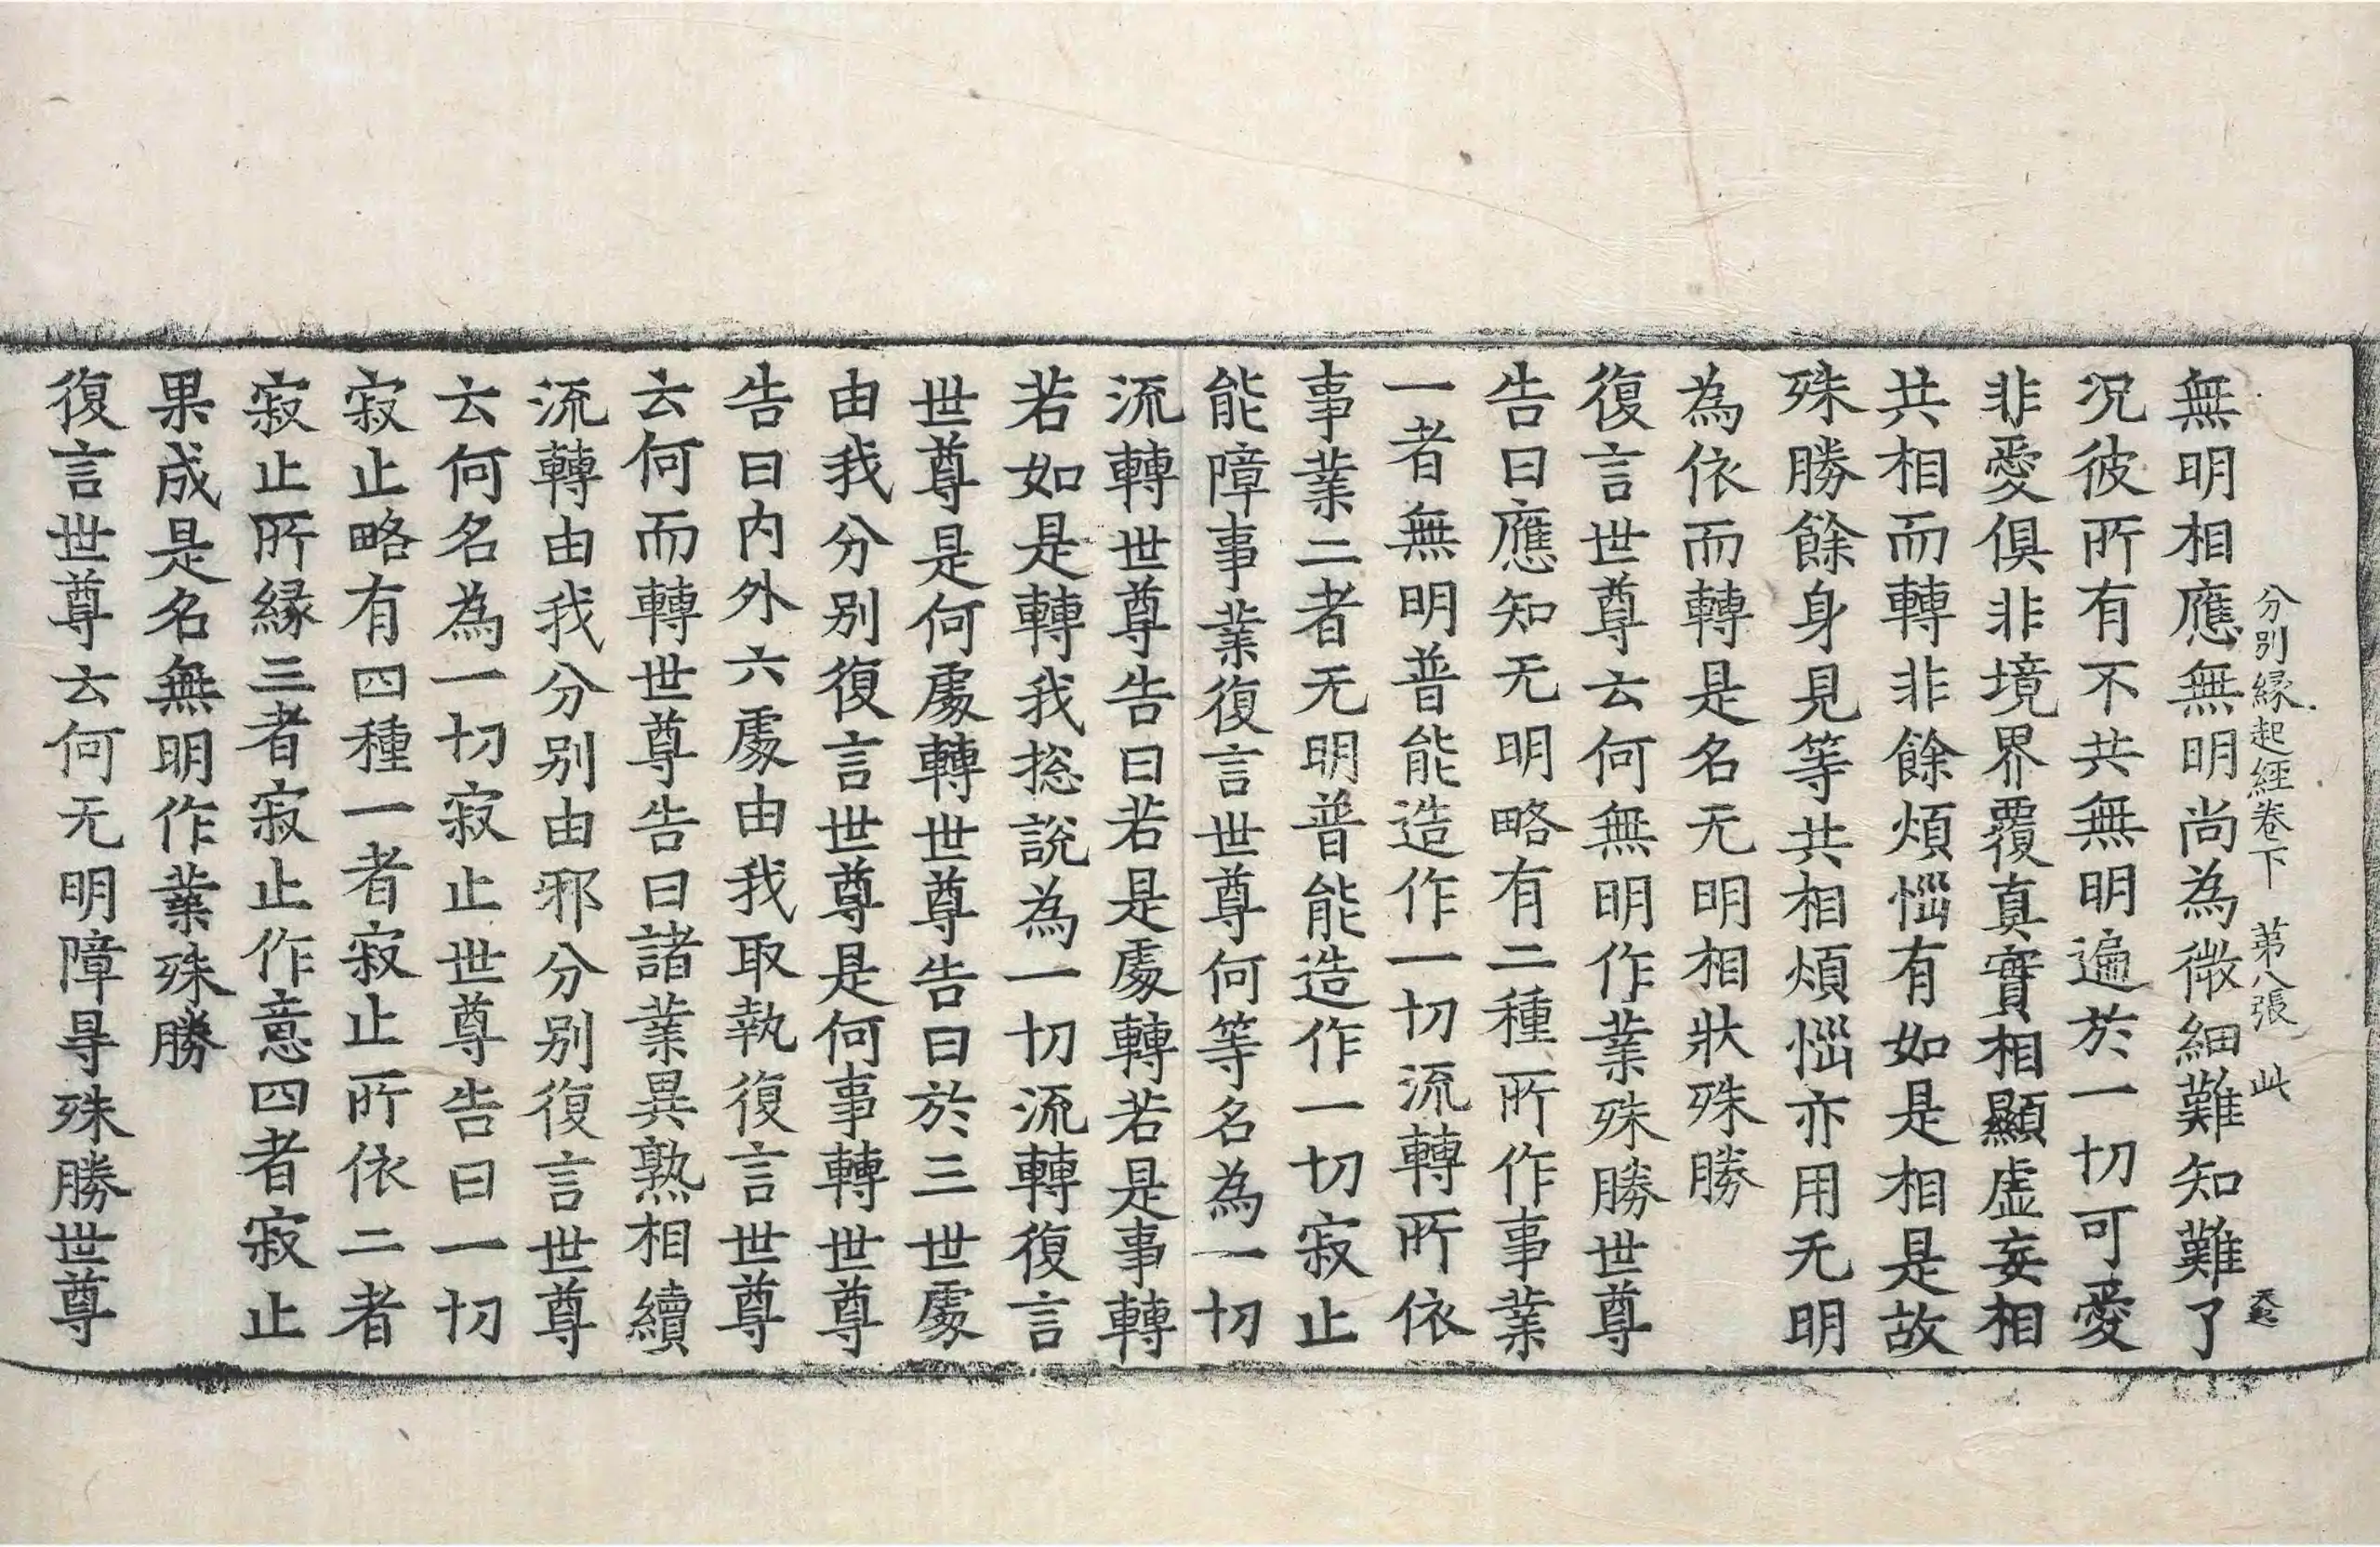 分別緣起經卷下　第八張　此
無明相應無明尚為微細難知難了
況彼所有不共無明遍於一切可愛
非愛俱非境界覆真實相顯虛妄相
共相而轉非餘煩惱有如是相是故
殊勝餘身見等共相煩惱亦用无明
為依而轉是名无明相狀殊勝
復言世尊云何無明作業殊勝世尊
告曰應知无明略有二種所作事業
一者無明普能造作一切流轉所依
事業二者无明普能造作一切寂止
能障事業復言世尊何等名為一切
流轉世尊告曰若是處轉若是事轉
若如是轉我揔說為一切流轉復言
世尊是何處轉世尊告曰於三世處
由我分別復言世尊是何事轉世尊
告曰內外六處由我取執復言世尊
云何而轉世尊告曰諸業異熟相續
流轉由我分別由邪分別復言世尊
云何名為一切寂止世尊告曰一切
寂止略有四種一者寂止所依二者
寂止所緣三者寂止作意四者寂止
果成是名無明作業殊勝
復言世尊云何无明障㝵殊勝世尊